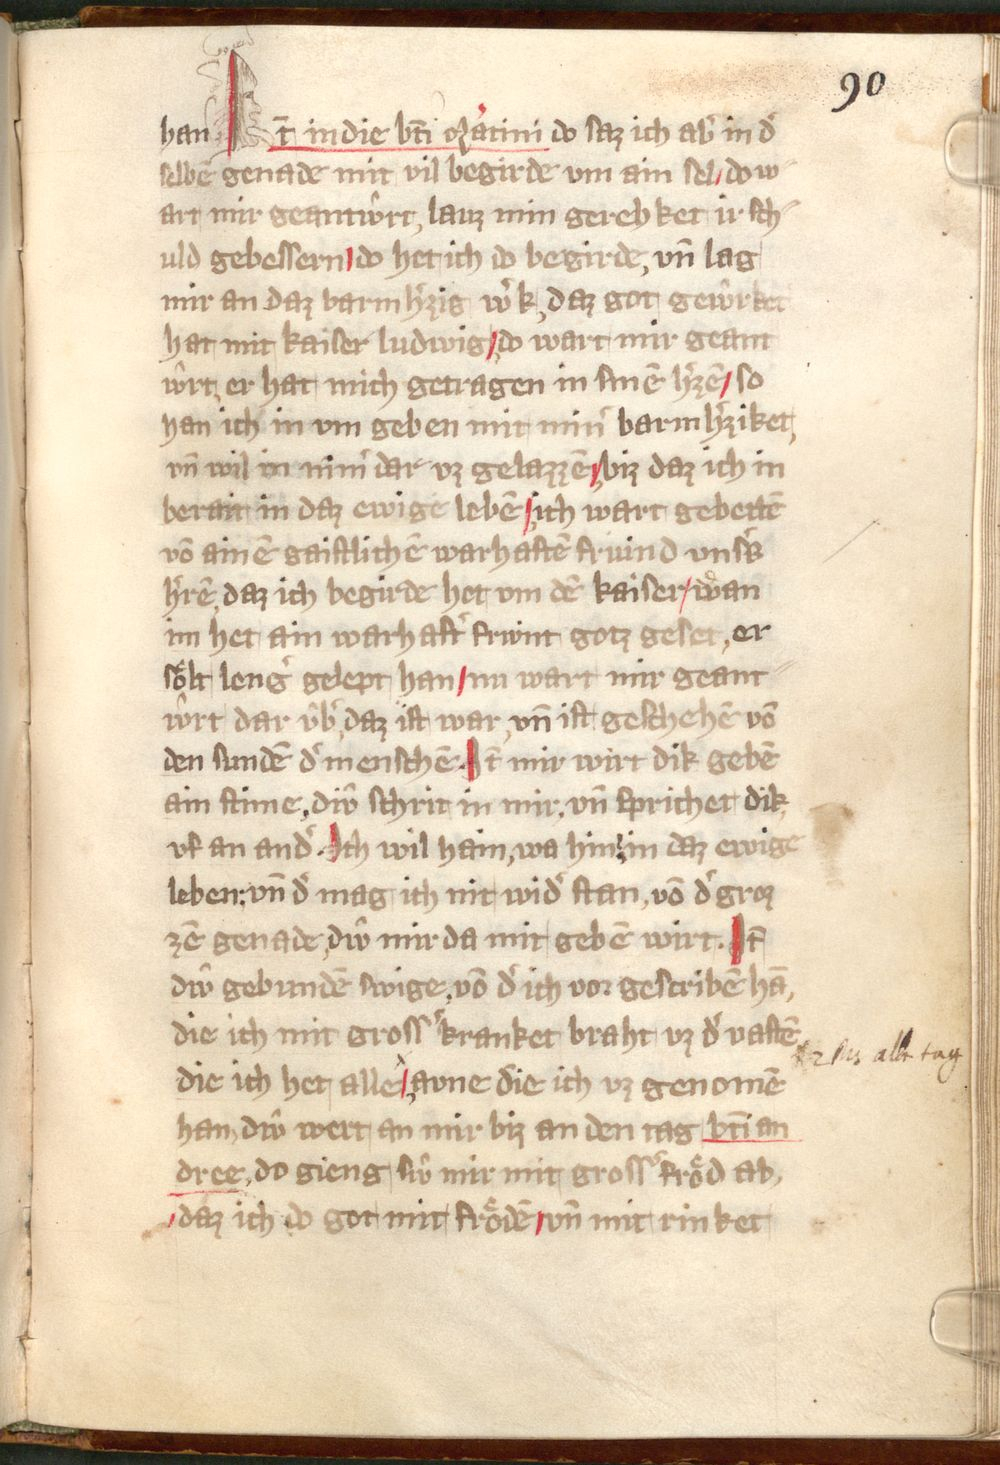 90
han It̄ in die bt̄i Mȧtini do saz ich ab͛ in d͛
selbē genade mit vil begirde vm ain sel / do w-
art mir geantwͦrt, lauz min gerehket ir sch-
uld gebessern / do het ich do begirde, vn̄ lag
mir an daz barmh͛zig w͛k, daz got gewͦrket
hat mit kaiser ludwig / do wart mir geant
wͦrt, er hat mich getragen in sinē h͛zē / so
han ich in vm geben mit min͛ barmh͛ziket,
vn̄ wil in nim͛ dar vz gelazzē / biz daz ich in
berait in daz ewige lebē / ich wart gebettē
vō ainē gaistlichē warhaftē friuind vns͛s
h͛rē, daz ich begirde het vm dē kaiser / wͦan
im het ain warhaft͛ friwnt gotz geseit, er
sͦͤlt leng͛ gelept han / nu wart mir geant-
wͦrt dar vͦb͛, daz ist war, vn̄ ist geschehē vō
den sundē d͛ menschē. It̄ mir wirt dik gebē
ain stime, diwͦ schrit in mir, vn̄ sprichet dik,
vf an and͛. Ich wil hain, wa hin, in daz ewige
leben: vn̄ d͛ mag ich nit wid͛ stan, vō d͛ groz
zē genade, diwͦ mir da mit gebē wirt. It̄
diwͦ gebundē swige, vō d͛ ich vor gescribē hā,
die ich mit gross͛ kranket braht vz d͛ vastē
die ich het alle / avne die ich vz genomē
han, diwͦ wert an mir biz an den tag bt̄i an
dree, do gieng siwͦ mir mit gross͛ frͦͤd ab,
/ daz ich do got mit frͦͤdē / vn̄ mit rinket
alle tag